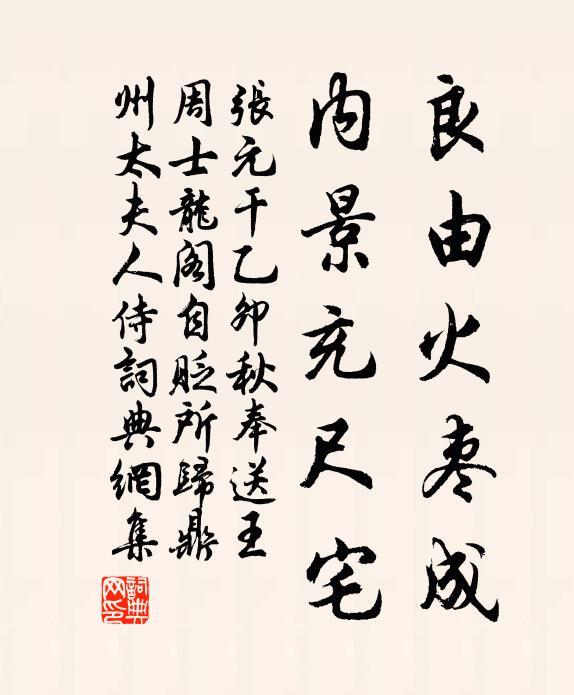 良由火枣成
内景充尺宅
張元干乙卯秋奉送王
周士龍阁自贬所歸鼎
州太夫人侍詞典網集
詞典
网印